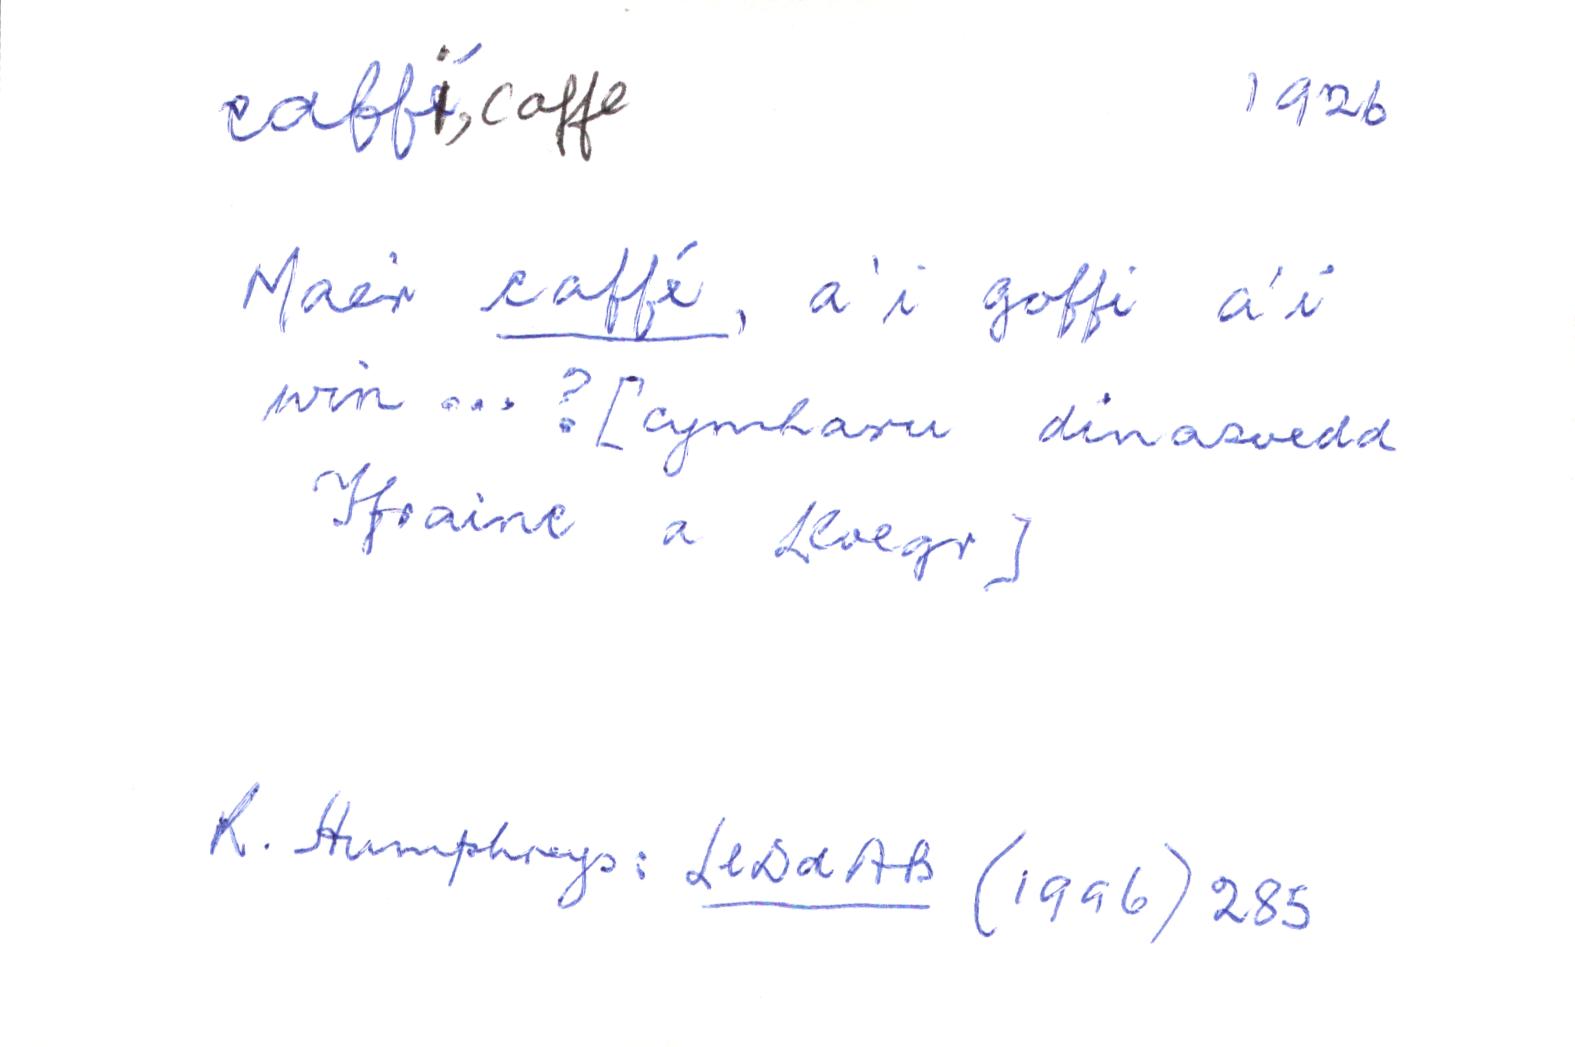 caffi, caffe 1926
Mae'r caffé, a'i goffi a'i
win ... ? [cymharu dinasoedd
Ffrainc a Lloegr]
R. Humphreys: LlDdAB (1996) 285